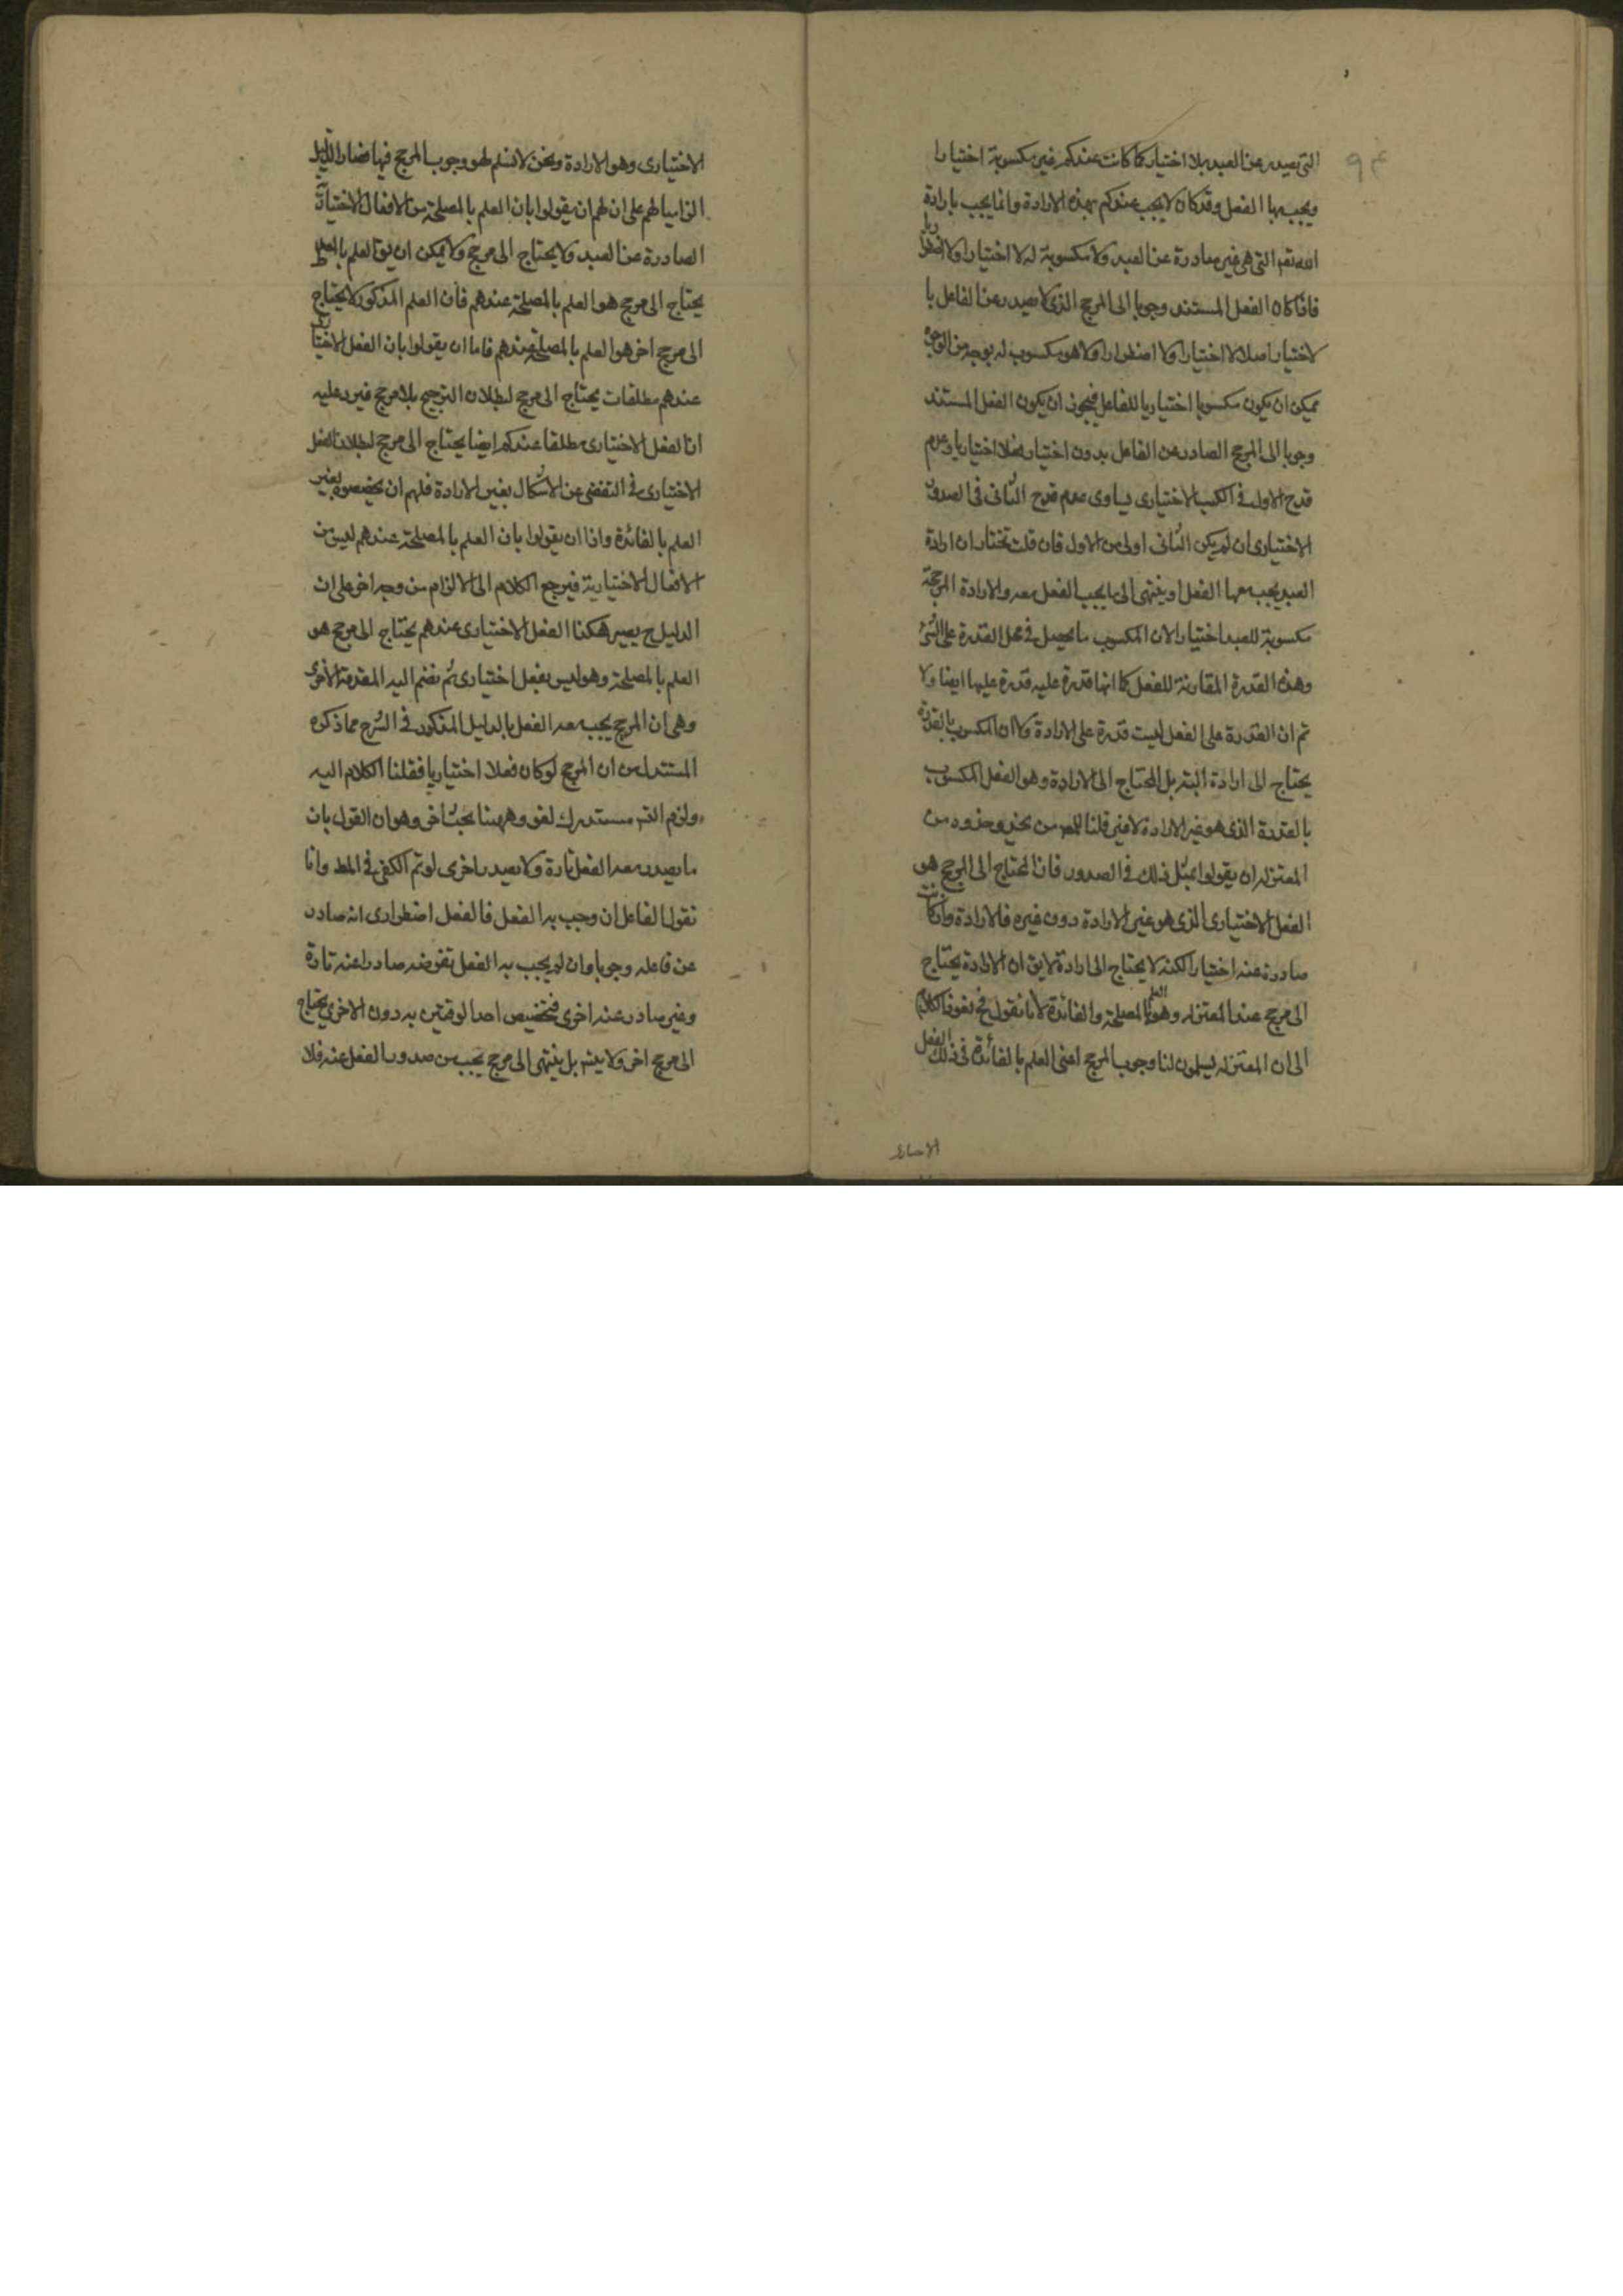 التى يصدر عن العبد بلا اختيار كما كانت عندكم غير مكسوبة اختيارا
ويجب بها الفعل وقد كان لا يجب عندكم بهذه الارادة وانما يجب بارادة
الله تعم التى هى غير صادرة عن العبد ولا مكسوبة له لا اختيارا ولا اضطرارا
فاذا كان الفعل المستند وجوبا الى المرجح الذى لا يصدر عن الفاعل با
لاختيار اصلا لا اختيارا ولا اضطرارا ولا هو مكسوب له بوجه من الوجوه
يمكن ان يكون مكسوبا اختياريا للفاعل فيجوز ان يكون الفعل المستند
وجوبا الى المرجح الصادر عن الفاعل بدون اختيار فعلا اختياريا وعدم
قدح الاول فى الكسب الاختيارى يساوى عدم قدح الثانى فى الصدور
الاختيارى ان لم يكن الثانى اولى من الاول فان قلت نختار ان ارادة
العبد يجب معها الفعل او ينتهى الى ما يجب الفعل معه والارادة المرجحة
مكسوبة للعبد اختيارا لان المكسوب ما يحصل فى محل القدرة على الشئ
وهذه القدرة المقارنة للفعل كما انها قدرة عليه قدرة عليها ايضا ولا
تم ان القدرة على الفعل ليست قدرة على الارادة ولا ان المكسوب بالقدرة
يحتاج الى ارادة البتة بل المحتاج الى الارادة وهو الفعل المكسوب
بالقدرة الذى هو غير الارادة لا غير قلنا من يحذو حذوه من
المعتزله ان يقولوا بمثل ذلك فى الصدور فان المحتاج الى المرجح هو
الفعل الاختيارى الذى هو غير الارادة دون غيره فالارادة وان كانت
صادرة عنه اختيارا لكنه لا يحتاج الى ارادة لا يق ان الارادة يحتاج
الى مرجح عند المعتزله وهو العلم بالمصلحة والفائدة لانا نقول ح نعود الكلام
الى ان المعتزله يسلمون لنا وجوب المرجح اعنى العلم بالفائدة فى ذلك الفعل
الاختيارى
الاختيارى وهو الارادة ونحن لا نسلم لهو وجوب المرجح فيها فصار الدليل
الزاميا لهم على ان لهم ان يقولوا بان العلم بالمصلحة من الافعال الاختيارية
الصادرة عن العبد ولا يحتاج الى مرجح ولا يمكن ان يق العلم بالمصلحة
يحتاج الى مرجح هو العلم بالمصلحة عندهم فان العلم المذكور لا يحتاج
الى مرجح اخر هو العلم بالمصلحة عندهم فاما ان يقولوا بان الفعل الاختيارى
عندهم مطلقات يحتاج الى مرجح لبطلان الترجيح بلا مرجح فيرد عليه
ان الفعل الاختيارى مطلقا عندكم ايضا يحتاج الى مرجح لبطلان الفعل
الاختيارى فى التفضى عن الاشكال بغير الارادة فلهم ان يخصصوه بغير
العلم بالفائدة واذا ان يقولوا بان العلم بالمصلحة عندهم ليس من
الافعال الاختيارية فيرجع الكلام الى الالزام من وجه اخر على ان
الدليل ح يصير هكذا الفعل الاختيارى عندهم يحتاج الى مرجح هو
العلم بالمصلحة وهو ليس بفعل اختيارى ثم نضم اليه المقدمة الاخرى
وهى ان المرجح يجب معه الفعل بالدليل المذكور فى الشرح مما ذكره
المستدل من ان المرجح لو كان فعلا اختياريا فقلنا الكلام اليه
ولزم التس مستدرك لغو وههنا بحث اخر وهو ان القول بان
ما يصدر معه الفعل تارة ولا يصدر اخرى لو تم الكفى فى المط وانا
نقول الفاعل ان وجب به الفعل فالفعل اضطرارى انه صادر
عن فاعله وجوبا وان لم يجب به الفعل نفرضه صادرا عنه تارة
وغير صادر عنه اخرى فتخصيص احد الوقتين به دون الاخرى يحتاج
الى مرجح اخر ولا يتم بل ينتهى الى مرجح يجب من صدور الفعل عنه فلا